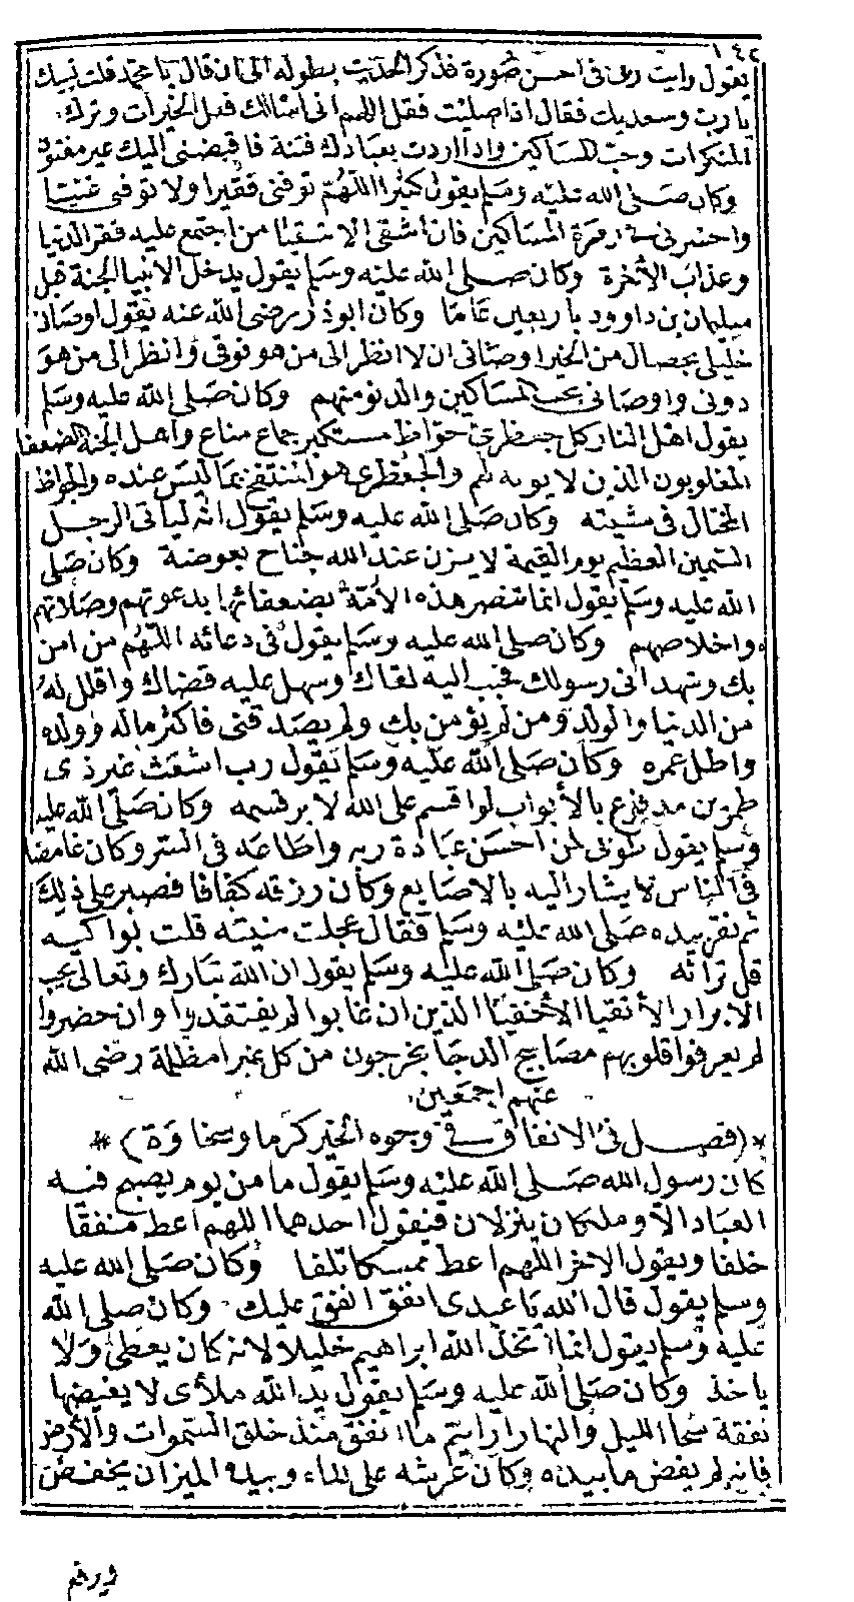 ١٤٢
يقول رايت ربى فى احسن صورة فذكر الحديث بطوله الى ان قال يا محمد قلت لبيك
يارب وسعديك فقال اذا صليت فقل اللهم انى اسالك فعل الخيرات وترك
المنكرات وحب المساكين واذا اردت بعبادك فتنة فاقبضنى اليك غير مفتون
وكان صلى الله عليه وسلم يقول كثيرا اللهم توفنى فقيرا ولا توفنى غنيا
واحشرنى فى زمرة المساكين فان اشقى الاشقيا من اجتمع عليه فقر الدنيا
وعذاب الآخرة وكان صلى الله عليه وسلم يقول يدخل الانبيا الجنة قبل
سليمان بن داوود باربعين عاما وكان ابو ذر رضى الله عنه يقول اوصانى
خليلى بخصال من الخير اوصانى ان لا انظر الى من هو فوقى وانظر الى من هو
دونى واوصانى بحب المساكين والدنو منهم وكان صلى الله عليه وسلم
يقول اهل النار كل جعظرى جواظ مستكبر جماع مناع واهل الجنة الضعفا
المغلوبون الذين لا يوبه لهم والجعظرى هو المنتفخ بما ليس عنده والجواظ
المختال فى مشيته وكان صلى الله عليه وسلم يقول انه لياتى الرجل
السمين العظيم يوم القيمة لا يزن عند الله جناح بعوضة وكان صلى
الله عليه وسلم يقول انما تنصر هذه الأمة بضعفائها بدعوتهم وصلاتهم
واخلاصهم وكان صلى الله عليه وسلم يقول فى دعائه اللهم من امن
بك وشهد انى رسولك فحبب اليه لقاك وسهل عليه قضاك واقلل له
من الدنيا والولد ومن لم يؤمن بك ولم يصدقنى فاكثر ماله وولده
واطل عمره وكان صلى الله عليه وسلم يقول رب اشعث غبر ذى
طمرين مدفوع بالأبواب لو اقسم على الله لابر قسمه وكان صلى الله عليه
وسلم يقول طوبى لمن احسن عبادة ربه واطاعه فى السر وكان غامضا
فى الناس لا يشار اليه بالاصابع وكان رزقه كفافا فصبر على ذلك
ثم نقر بيده صلى الله عليه وسلم فقال عجلت منيته قلت بواكيه
قل تراثه وكان صلى الله عليه وسلم يقول ان الله تبارك وتعالى يحب
الابرار الأتقيا الأخفيا الذين ان غابوا لم يفتقدوا وان حضروا
لم يعرفوا قلوبهم مصابيح الدجا يخرجون من كل غبرا مظلمة رضى الله
عنهم اجمعين
*(فصل فى الانفاق فى وجوه الخير كرما وسخاوة)*
كان رسول الله صلى الله عليه وسلم يقول ما من يوم يصبح فيه
العباد الا وملكان ينزلان فيقول احدهما اللهم اعط منفقا
خلفا ويقول الاخر اللهم اعط ممسكا تلفا وكان صلى الله عليه
وسلم يقول قال الله يا عبدى انفق انفق عليك وكان صلى الله
عليه وسلم يقول انما اتخذ الله ابراهيم خليلا لانه كان يعطى ولا
ياخذ وكان صلى الله عليه وسلم يقول يد الله ملأى لا يغيضها
نفقة سحا الليل والنهار ارايتم ما انفق منذ خلق السموات والأرض
فانه لم يغض ما بيده وكان عرشه على الماء وبيده الميزان يخفض
ويرفع